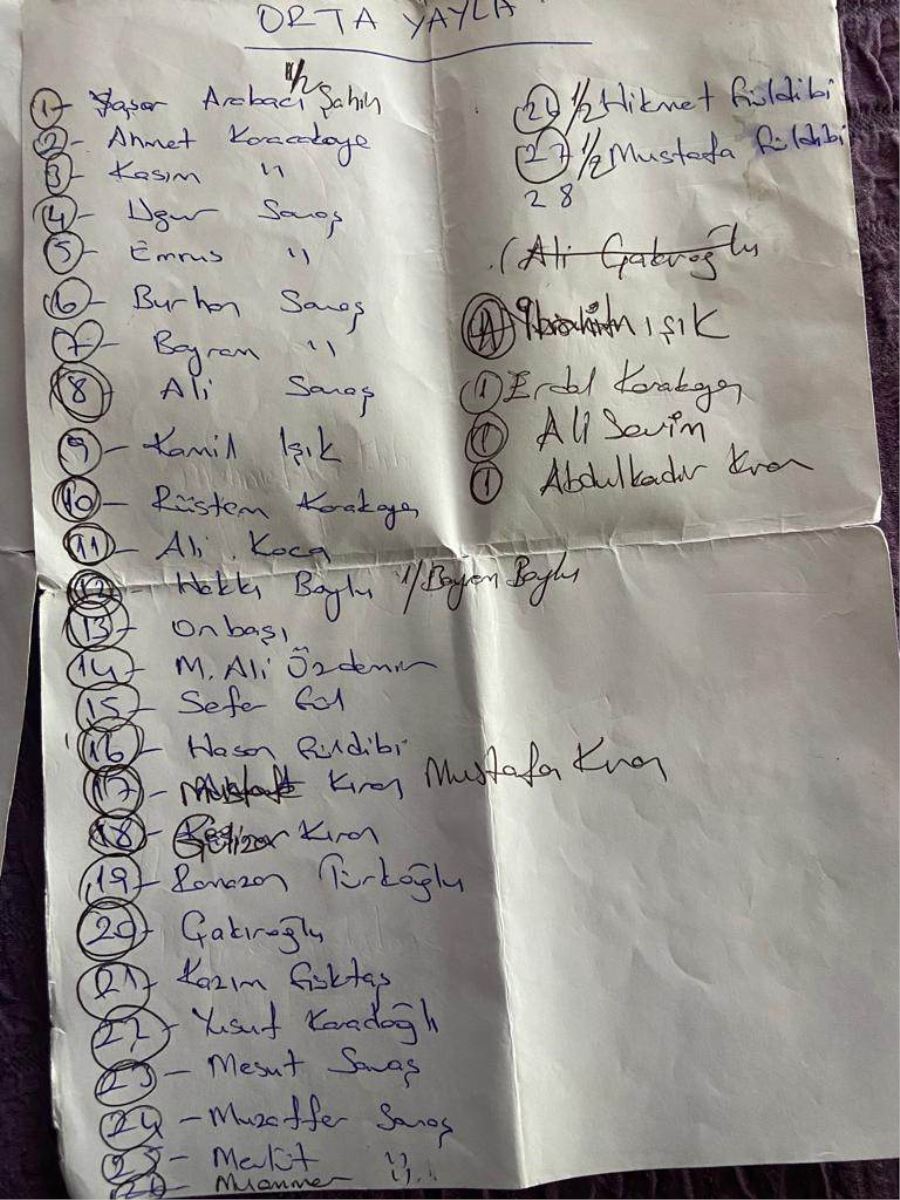 ORTA YAYLA
1- Yaşar Arabacı 1/2 Şahin
2- Ahmet Karacakaya
3- Kasım "
4- Uğur Savaş
5- Emrus "
6- Burhan Savaş
7- Bayram "
8- Ali Savaş
9- Kamil Işık
10- Rüstem Karakaya
11- Ali Koca
12- Hakkı Baylu 1/Bayram Baylu
13- Onbaşı
14- M. Ali Özdemir
15- Sefer Gül
16- Hasan Güldibi
17- Kıran Mustafa Kıran
18- Gülizar Kıran
19- Ramazan Türkoğlu
20- Çakıroğlu
21- Kazım Göktaş
22- Yusuf Karadağlı
23- Mesut Savaş
24- Muzaffer Savaş
25- Mevlüt "
26- Muammer "
1/2 Hikmet Güldibi
27 1/2 Mustafa Güldibi
28
(Ali Çakıroğlu
İbrahim IŞIK
1 Erdal Karakaya
1 Ali Sevim
1 Abdulkadir Kıran